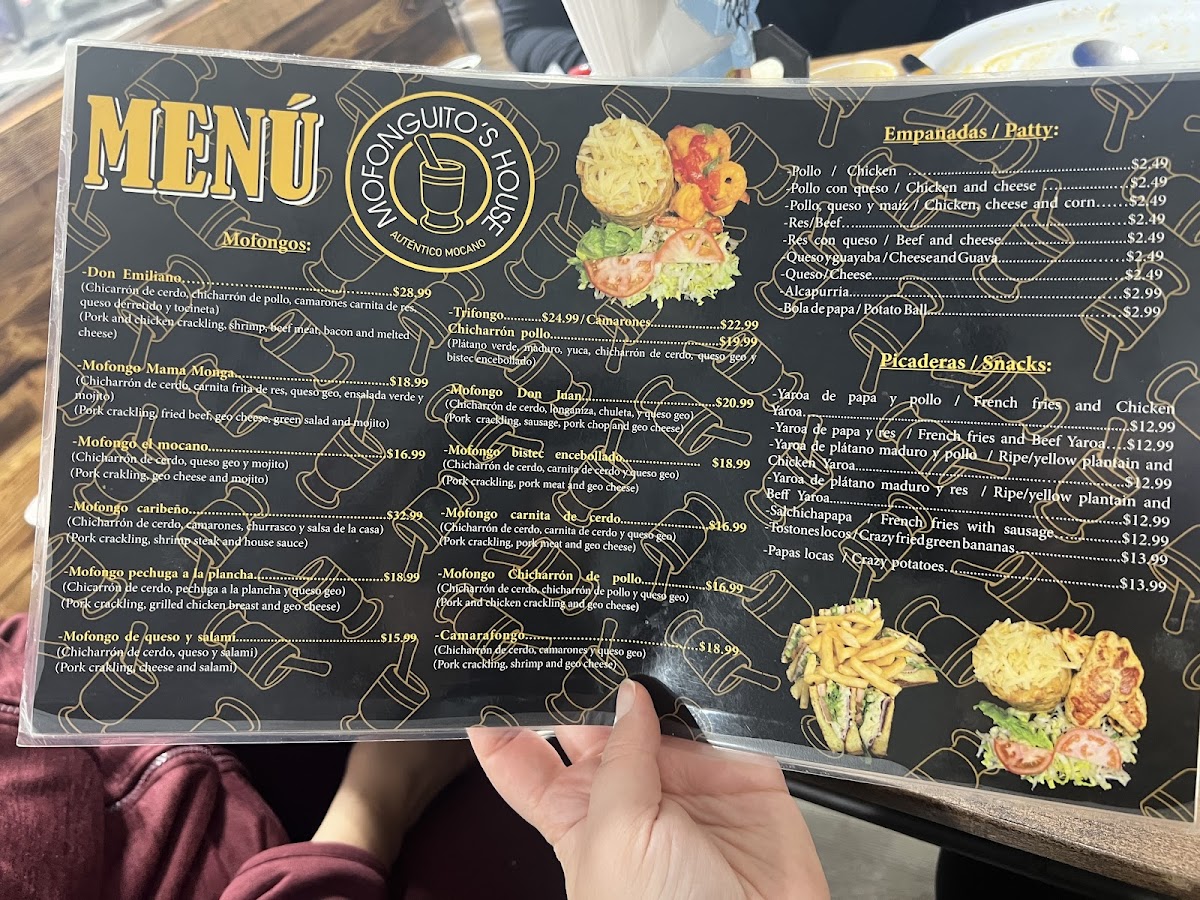 MENÚ
MOFONGUITO'S HOUSE
AUTÉNTICO MOCANO
Mofongos:
-Don Emiliano..........$28.99
(Chicarrón de cerdo, chicharrón de pollo, camarones carnita de res,
queso derretido y tocineta)
(Pork and chicken crackling, shrimp, beef meat, bacon and melted
cheese)
-Mofongo Mama Monga..........$18.99
(Chicharrón de cerdo, carnita frita de res, queso geo, ensalada verde y
mojito)
(Pork crackling, fried beef, geo cheese, green salad and mojito)
-Mofongo el mocano..........$16.99
(Chicharrón de cerdo, queso geo y mojito)
(Pork crakling, geo cheese and mojito)
-Mofongo caribeño..........$32.99
(Chicharrón de cerdo, camarones, churrasco y salsa de la casa)
(Pork crackling, shrimp steak and house sauce)
-Mofongo pechuga a la plancha..........$18.99
(Chicarrón de cerdo, pechuga a la plancha y queso geo)
(Pork crackling, grilled chicken breast and geo cheese)
-Mofongo de queso y salami..........$15.99
(Chicharrón de cerdo, queso y salami)
(Pork crakling, cheese and salami)
-Trifongo..........$24.99 / Camarones..........$22.99
Chicharrón pollo..........$19.99
(Plátano verde, maduro, yuca, chicharrón de cerdo, queso geo y
bistec encebollado)
-Mofongo Don Juan..........$20.99
(Chicharrón de cerdo, longaniza, chuleta, y queso geo)
(Pork crackling, sausage, pork chop and geo cheese)
-Mofongo bistec encebollado..........$18.99
(Chicharrón de cerdo, carnita de cerdo y queso geo)
(Pork crackling, pork meat and geo cheese)
-Mofongo carnita de cerdo..........$16.99
(Chicharrón de cerdo, carnita de cerdo y queso geo)
(Pork crackling, pork meat and geo cheese)
-Mofongo Chicharrón de pollo..........$16.99
(Chicharrón de cerdo, chicharrón de pollo y queso geo)
(Pork and chicken crackling and geo cheese)
-Camarafongo..........$18.99
(Chicharrón de cerdo, camarones y queso geo)
(Pork crackling, shrimp and geo cheese)
Empanadas / Patty:
-Pollo / Chicken ..........$2.49
-Pollo con queso / Chicken and cheese ..........$2.49
-Pollo, queso y maíz / Chicken, cheese and corn......$2.49
-Res/Beef..........$2.49
-Res con queso / Beef and cheese..........$2.49
-Queso y guayaba / Cheese and Guava..........$2.49
-Queso/Cheese..........$2.49
-Alcapurria..........$2.99
-Bola de papa / Potato Ball..........$2.99
Picaderas / Snacks:
-Yaroa de papa y pollo / French fries and Chicken
Yaroa..........$12.99
-Yaroa de papa y res / French fries and Beef Yaroa ....$12.99
-Yaroa de plátano maduro y pollo / Ripe/yellow plantain and
Chicken Yaroa..........$12.99
-Yaroa de plátano maduro y res / Ripe/yellow plantain and
Beff Yaroa..........$12.99
-Salchichapapa / French fries with sausage..........$12.99
-Tostones locos / Crazy fried green bananas..........$13.99
-Papas locas / Crazy potatoes..........$13.99